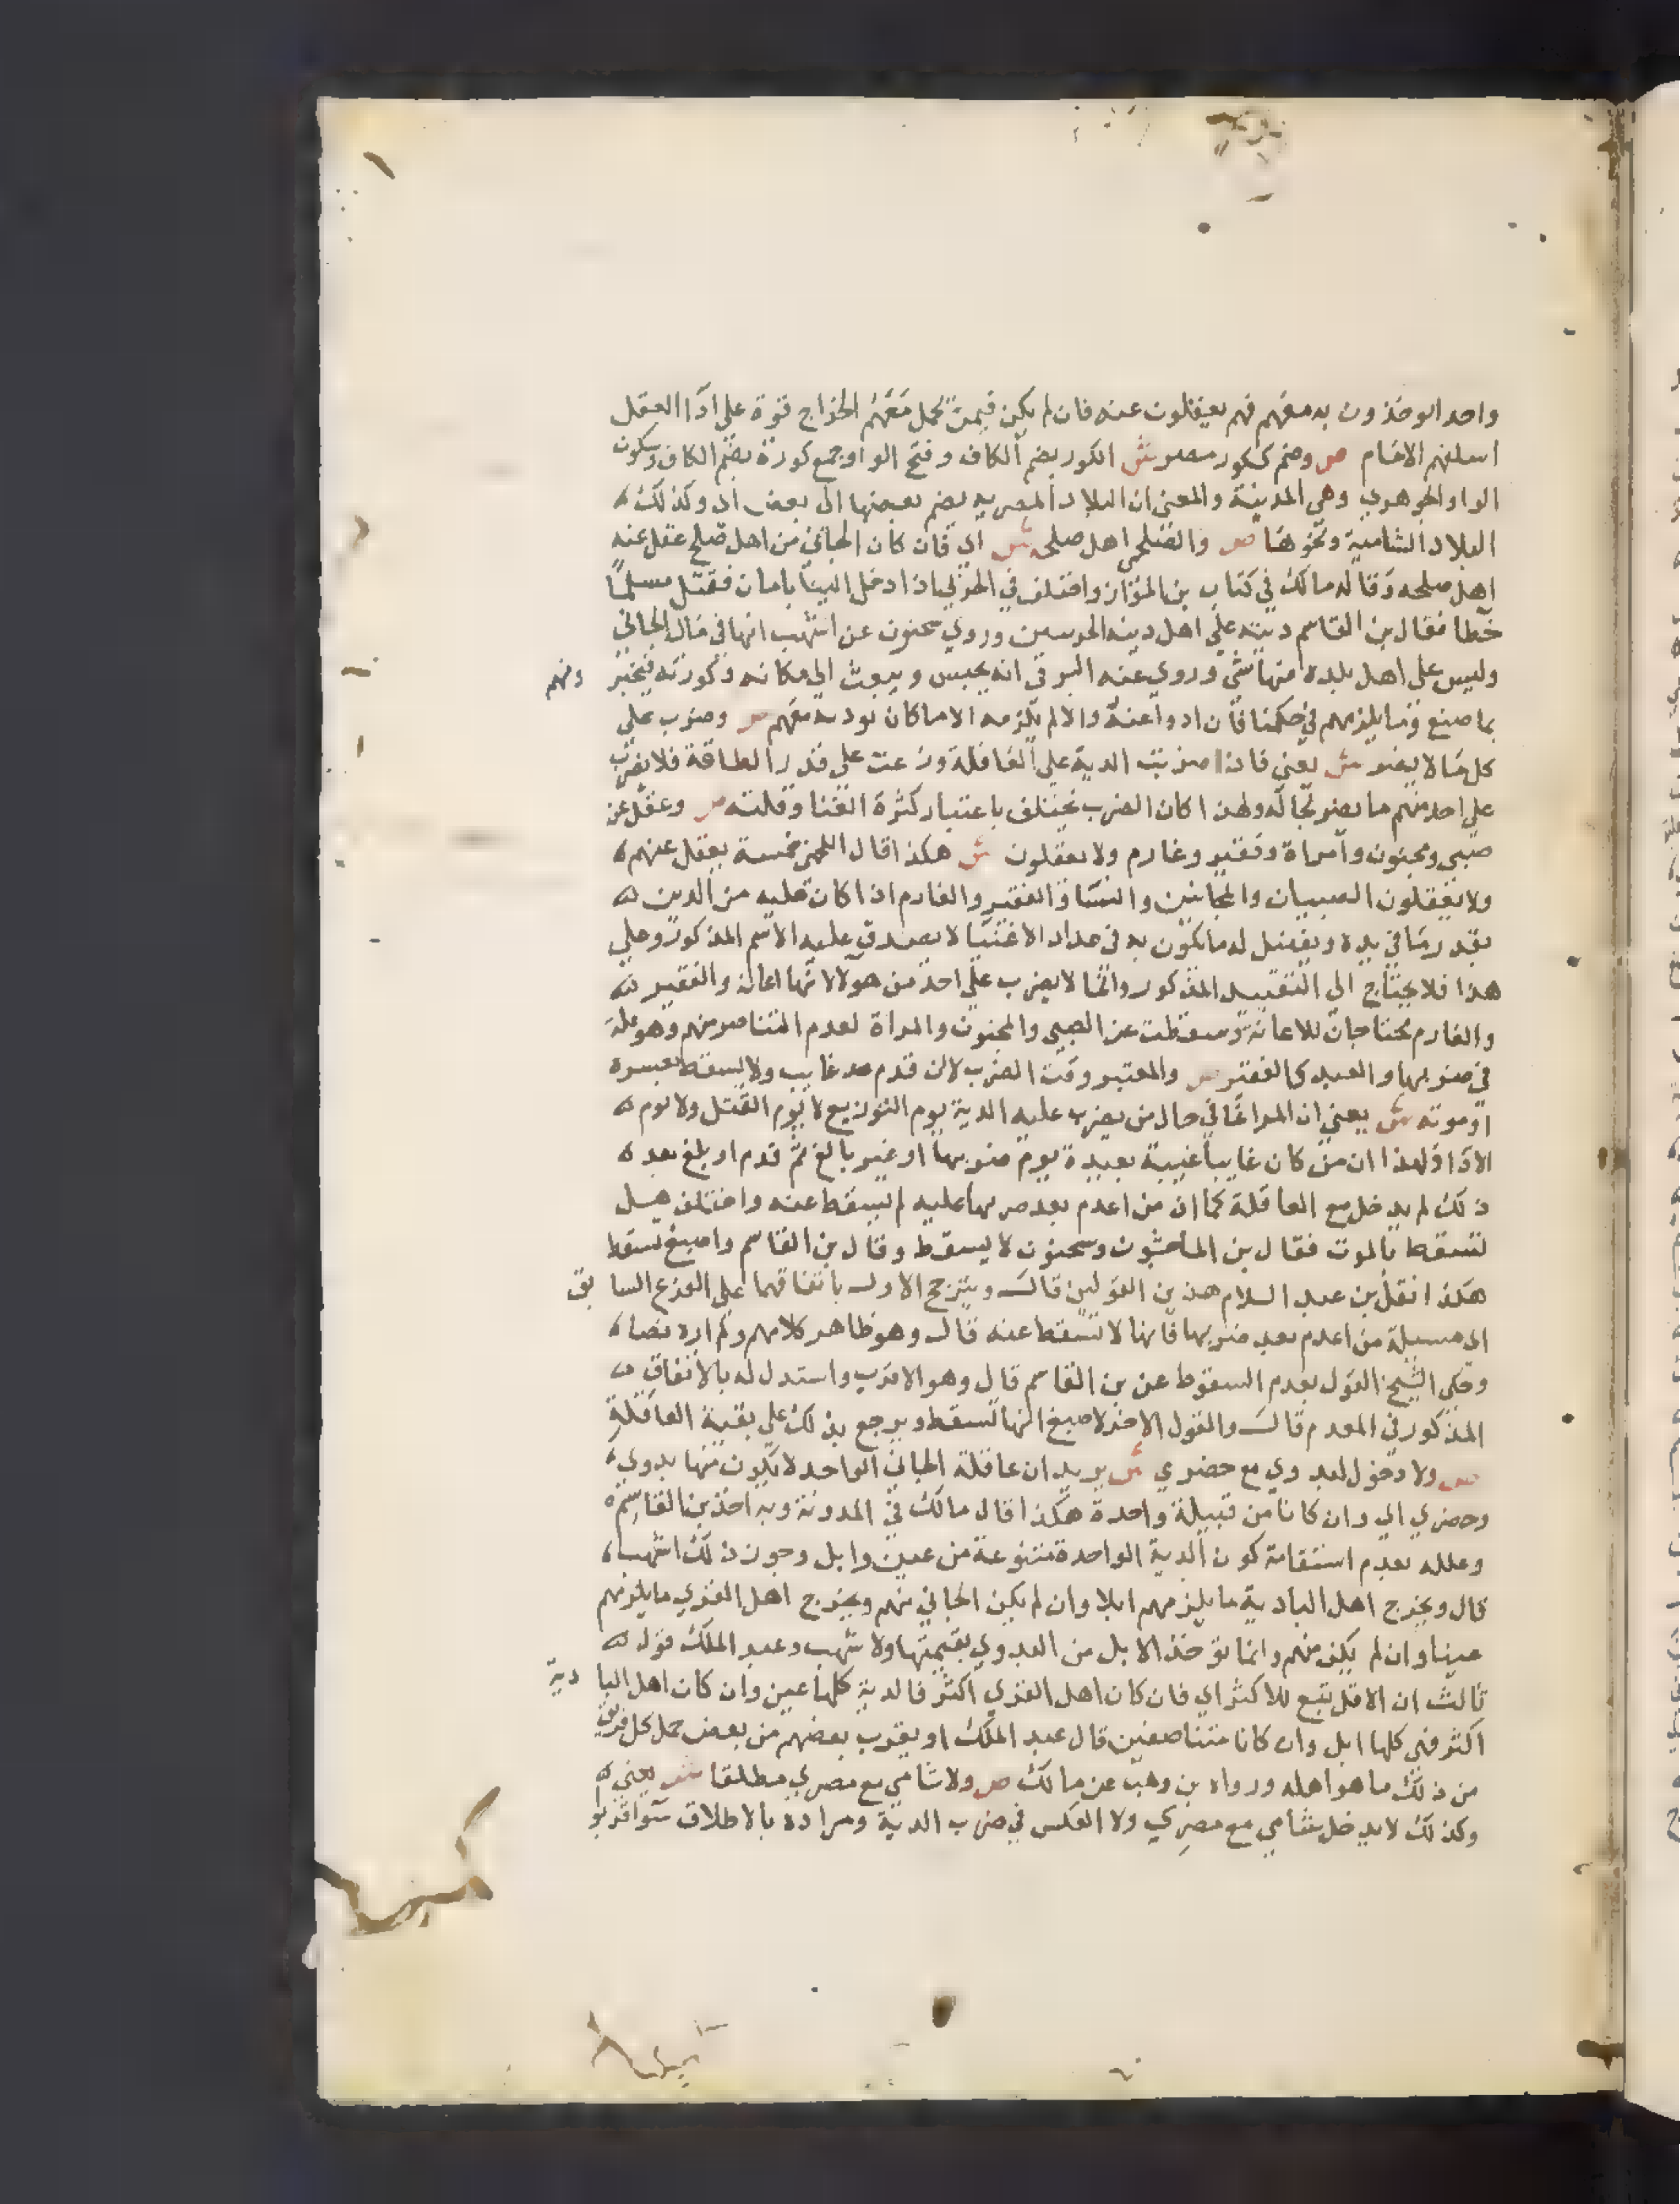 واحد ابو خذون به معهم فهم يعقلون عنه فان لم يكن فيمن يحمل معهم الخراج قوة على ادا العقل
اسلفهم الامام ص وضم ككور مصر ش الكور بضم الكاف وفتح الواو جمع كورة بضم الكاف وسكون
الواو الجوهري وهي المدينة والمعنى ان البلاد المصرية يضم بعضها الى بعض اي وكذلك
البلاد الشامية ونحوها ص والصلحي اهل صلحه ش اي فان كان الجاني من اهل صلح عقل عنه
اهل صلحه وقاله مالك في كتاب بن المواز واختلف في الحربي اذا دخل الينا بامان فقتل مسلما
خطا فقال بن القاسم ديته على اهل دينه الحربيين وروي سحنون عن اشهب انها في مال الجاني
وليس على اهل بلده منها شي وروي عنه البرقي انه يحبس ويبعث الى مكانه وكورته فيخبر ونهم
بما صنع وما يلزمهم في حكمنا فان ادوا عنه والا لم يلزمه الا ما كان يوديه معهم ص وضرب على
كل ما لا يضر ش يعني فاذا ضربت الدية على العاقلة وزعت على قدر الطاقة فلا يضرب
على احد منهم ما يضر بحاله ولهذا كان الضرب يختلف باعتبار كثرة الغنا وقلته ص وعقل عن
صبي ومجنون وامراة وفقير وغارم ولا يعقلون ش هكذا قال اللخمي خمسة يعقل عنهم
ولا يعقلون الصبيان والمجانين والنسا والفقير والغارم اذا كان عليه من الدين
بقدر ما في يده ويفضل له ما يكون به في عداد الاغنيا لا يصدق عليه الاسم المذكور وعلي
هذا فلا يحتاج الى التقييد المذكور وانما لا يضرب على احد من هولا لانها اعانة والفقير
والغارم محتاجان للاعانة وسقطت عن الصبي والمجنون والمراة لعدم التناصر منهم وهو علة
في ضربها والعبد كالفقير ص والمعتبر وقت الضرب لا ان قدم غايب ولا يسقط بعسره
او موته ش يعني ان المراعا في حال من يضرب عليه الدية يوم التوزيع لا يوم القتل ولا يوم
الادا ولهذا ان من كان غايبا غيبة بعيدة يوم ضربها او غير بالغ ثم قدم او بلغ بعد
ذلك لم يدخل مع العاقلة كما ان من اعدم بعد ضربها عليه لم يسقط عنه واختلف هل
تسقط بالموت فقال بن الماجشون وسحنون لا يسقط وقال بن القاسم واصبغ تسقط
هكذا نقل بن عبد السلام هذين القولين قال ويترجح الاول باتفاقهما على الفرع السابق
اي مسيلة من اعدم بعد ضربها فانها لا تسقط عنه قال وهو ظاهر كلامهم ولم اره نصا
وحكي الشيخ القول بعدم السقوط عن بن القاسم قال وهو الاقرب واستدل له بالاتفاق
المذكور في المعدم قال والقول الاخر لاصبغ انها تسقط ويرجع بذلك على بقية العاقلة
ص ولا دخول لبدوي مع حضري ش يريد ان عاقلة الجاني الواحد لا يكون منها بدوي
وحضري اي وان كانا من قبيلة واحدة هكذا قال مالك في المدونة وبه اخذ بن القاسم
وعلله بعدم استقامة كون الدية الواحدة متنوعة من عين وابل وجوز ذلك اشهب
قال ويخرج اهل البادية ما يلزمهم ابلا وان لم يكن الجاني منهم ويخرج اهل القري ما يلزمهم
عينا وان لم يكن منهم وانما توخذ الابل من البدوي بقيمتها ولاشهب وعبد الملك قول
ثالث ان الاقل يتبع للاكثر اي فان كان اهل القري اكثر فالدية كلها عين وان كان اهل البادية
اكثر فهي كلها ابل وان كانا متناصفين قال عبد الملك او يقرب بعضهم من بعض حمل كل فريق
من ذلك ما هو اهله ورواه بن وهب عن مالك ص ولا شامي مع مصري مطلقا ش يعني
وكذلك لا يدخل شامي مع مصري ولا العكس في ضرب الدية ومراده بالاطلاق سوا قربوا